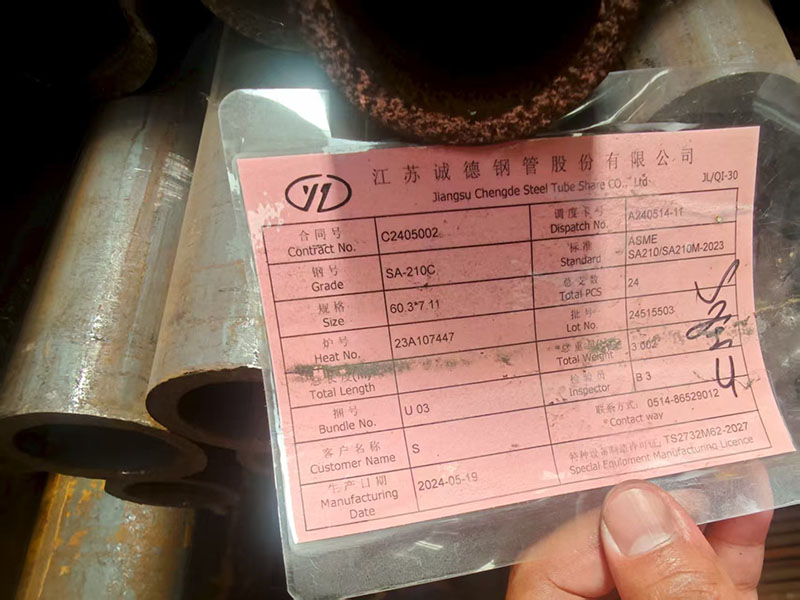 江苏诚德钢管股份有限公司
Jiangsu Chengde Steel Tube Share CO., Ltd
JL/QI-30
合同号
Contract No.
C2405002
调度卡号
Dispatch No.
A240514-11
钢号
Grade
SA-210C
标准
Standard
ASME
SA210/SA210M-2023
规格
Size
60.3*7.11
总支数
Total PCS
24
炉号
Heat No.
23A107447
批号
Lot No.
24515503
Total Length
Total Weight
捆号
Bundle No.
U 03
检验员
Inspector
B 3
客户名称
Customer Name
S
联系方式: 0514-86529012
Contact way
生产日期
Manufacturing
Date
2024-05-19
特种设备制造许可证: TS2732M62-2027
Special Equipment Manufacturing Licence